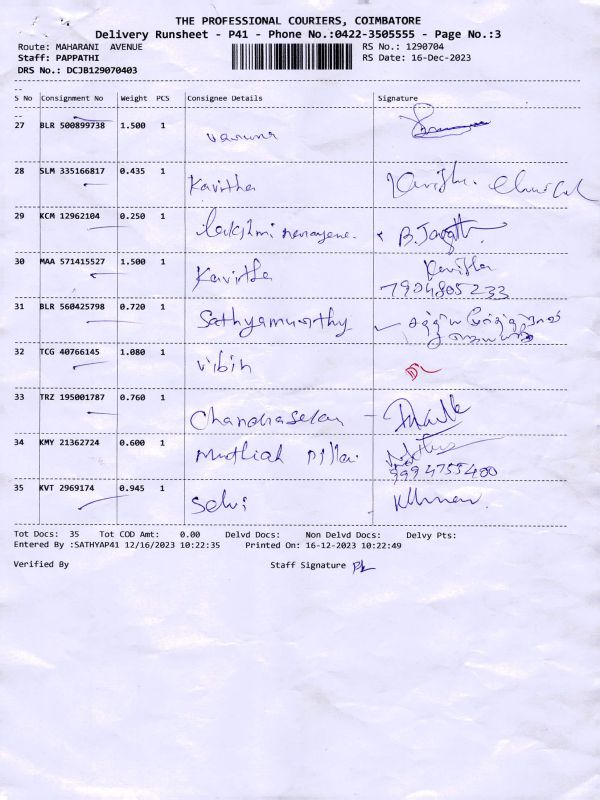 THE PROFESSIONAL COURIERS, COIMBATORE
Delivery Runsheet - P41 - Phone No.:0422-3505555 - Page No.:3
Route: MAHARANI AVENUE RS No.: 1290704
Staff: PAPPATHI RS Date: 16-Dec-2023
DRS No.: DCJB129070403
S No Consignment No Weight PCS Consignee Details Signature
27 BLR 500899738 1.500 1
28 SLM 335166817 0.435 1 Kavitha
29 KCM 12962104 0.250 1 Lakshmi narayana.
30 MAA 571415527 1.500 1 Kavitha Kavitha
7904805233
31 BLR 560425798 0.720 1 Sathyamurthy
32 TCG 40766145 1.080 1 Vibin
33 TRZ 195001787 0.760 1 Chandrasekar
34 KMY 21362724 0.600 1 Muthiah Pillai
9994755400
35 KVT 2969174 0.945 1 Selvi
Tot Docs: 35 Tot COD Amt: 0.00 Delvd Docs: Non Delvd Docs: Delvy Pts:
Entered By :SATHYAP41 12/16/2023 10:22:35 Printed On: 16-12-2023 10:22:49
Verified By Staff Signature